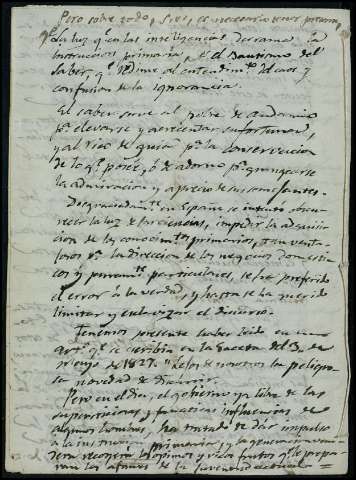 Pero sobre todo, Sres, es necesario tener presente,
La luz qe en las inteligencias derrama la
instruccion primaria, es el Bautismo del
saber, qe redime al entendimto del caos y
confusion de la ignorancia.
El saber sirve al pobre de andamio
pa elevarse y acrecentar su fortuna,
y al rico de guia pa la conservacion
de lo qe posee, ó de adorno pa grangearse
la admiracion y aprecio de sus semejantes.
Desgraciadamte en España se intentó obscu-
recer la luz de las ciencias, impedir la adquisi-
cion de los conocimtos primarios,
pa la direccion de los negocios domesti-
cos y puramte particulares, se ha preferido
el error á la verdad, y hasta se ha querido
limitar y esclavizar el discurso.
Tenemos presente haber leido en un
artº qe se escribia en la Gaceta del 3 de
mayo de 1827. "lejos de nosotros la peligro-
sa novedad de discurrir.
Pero en el dia, el gobierno ya libre de las
supersticiosas y fanaticas influencias de
algunos hombres, ha tratado de dar impulso
a la instruccion primaria, y la generacion veni-
dera recogerá los opimos y ricos frutos qe le prepa-
ran los afanes de la juventud actual.